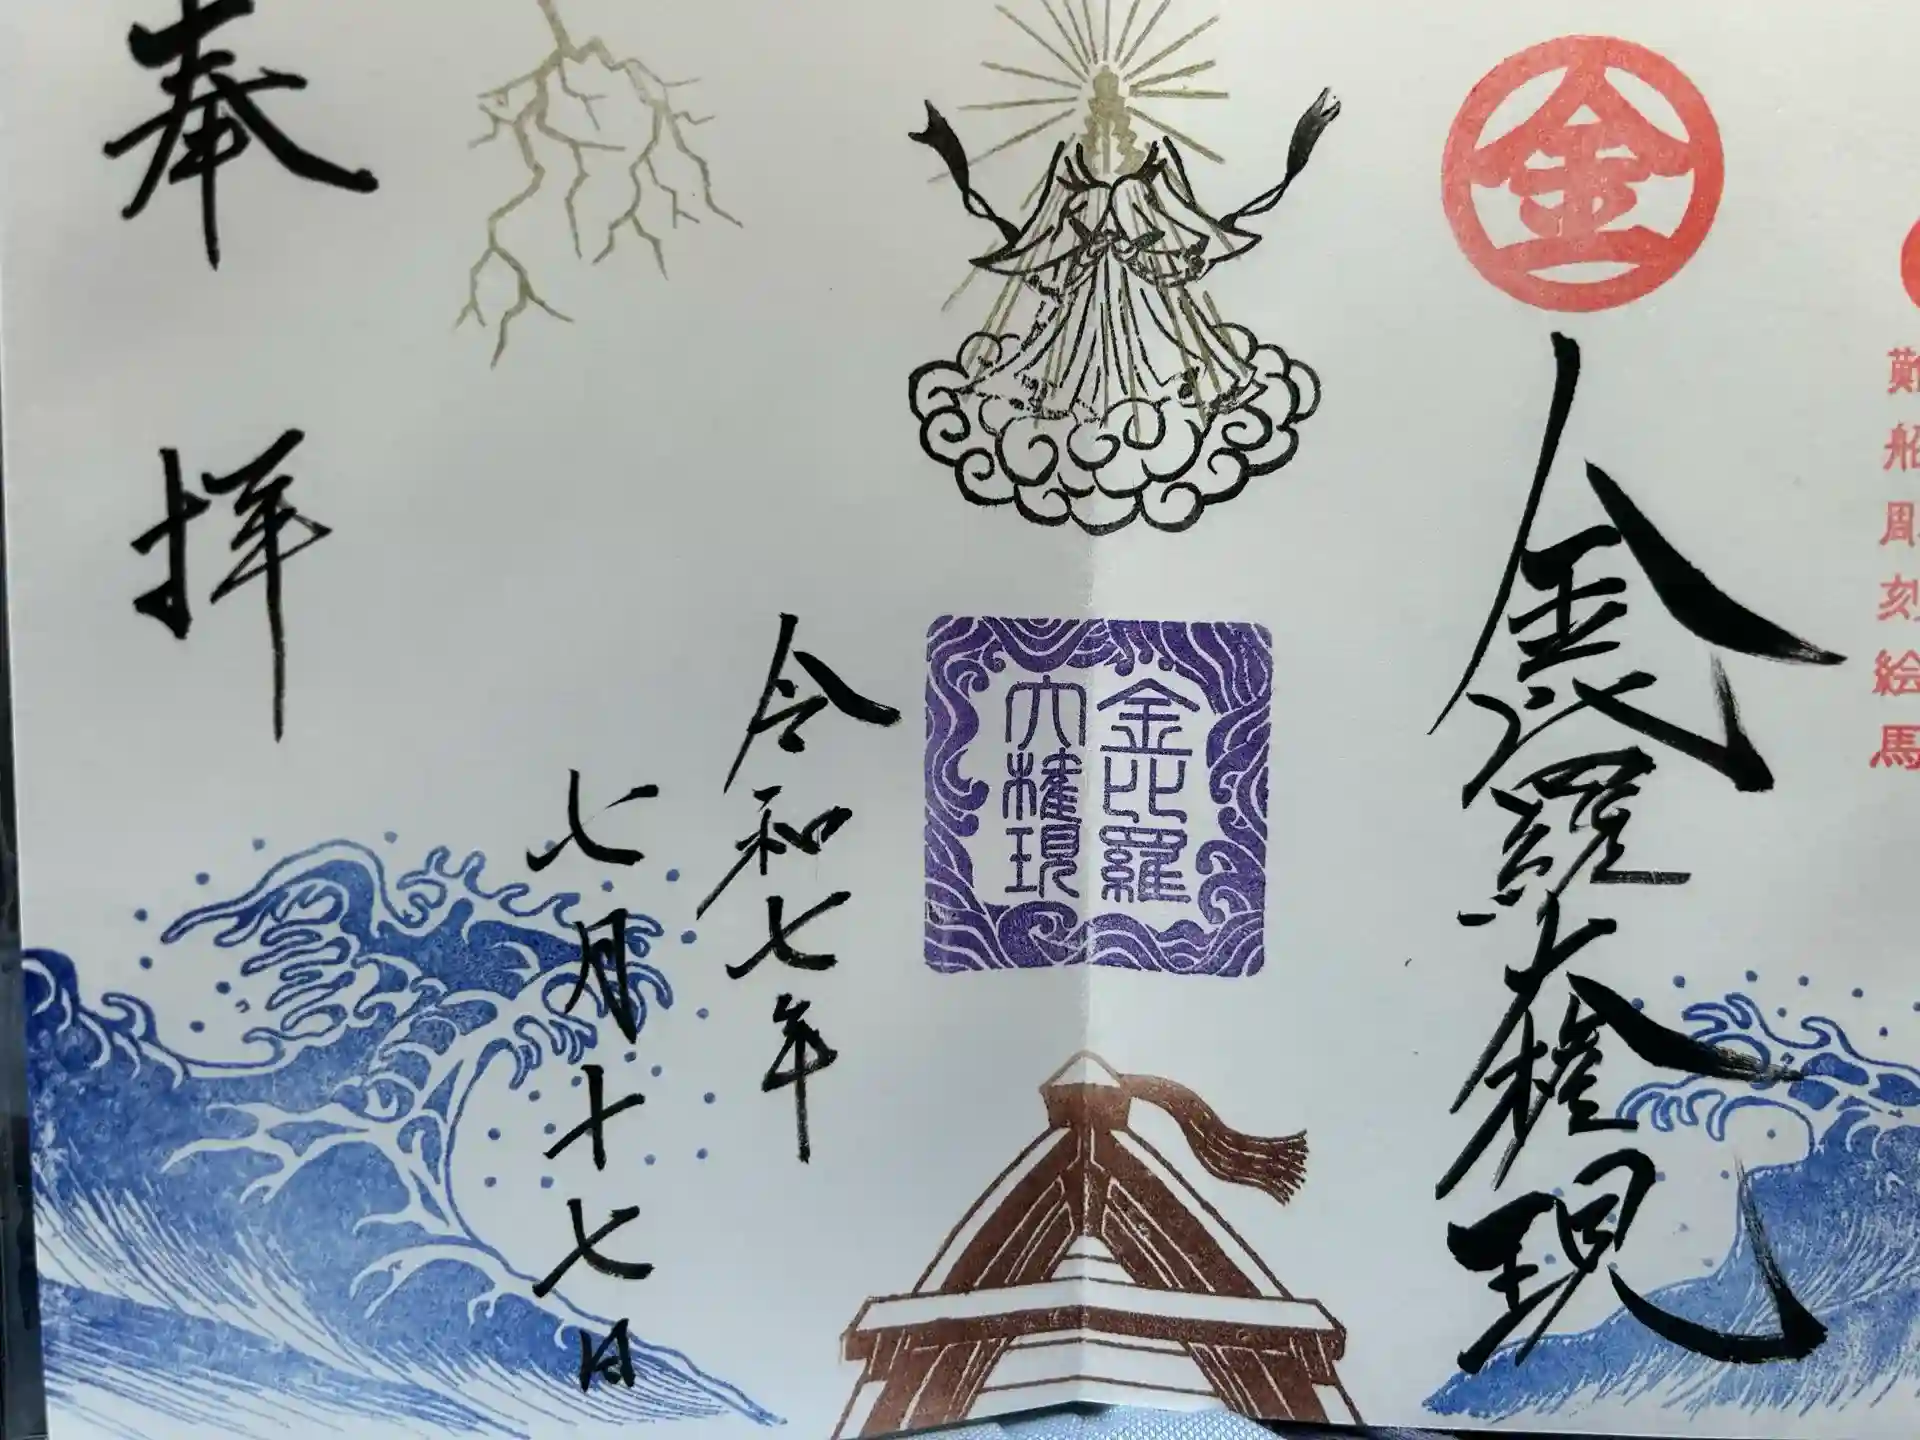 難船彫刻絵馬
金
金比羅大権現
金比羅
大権現
令和七年
七月十七日
奉拝